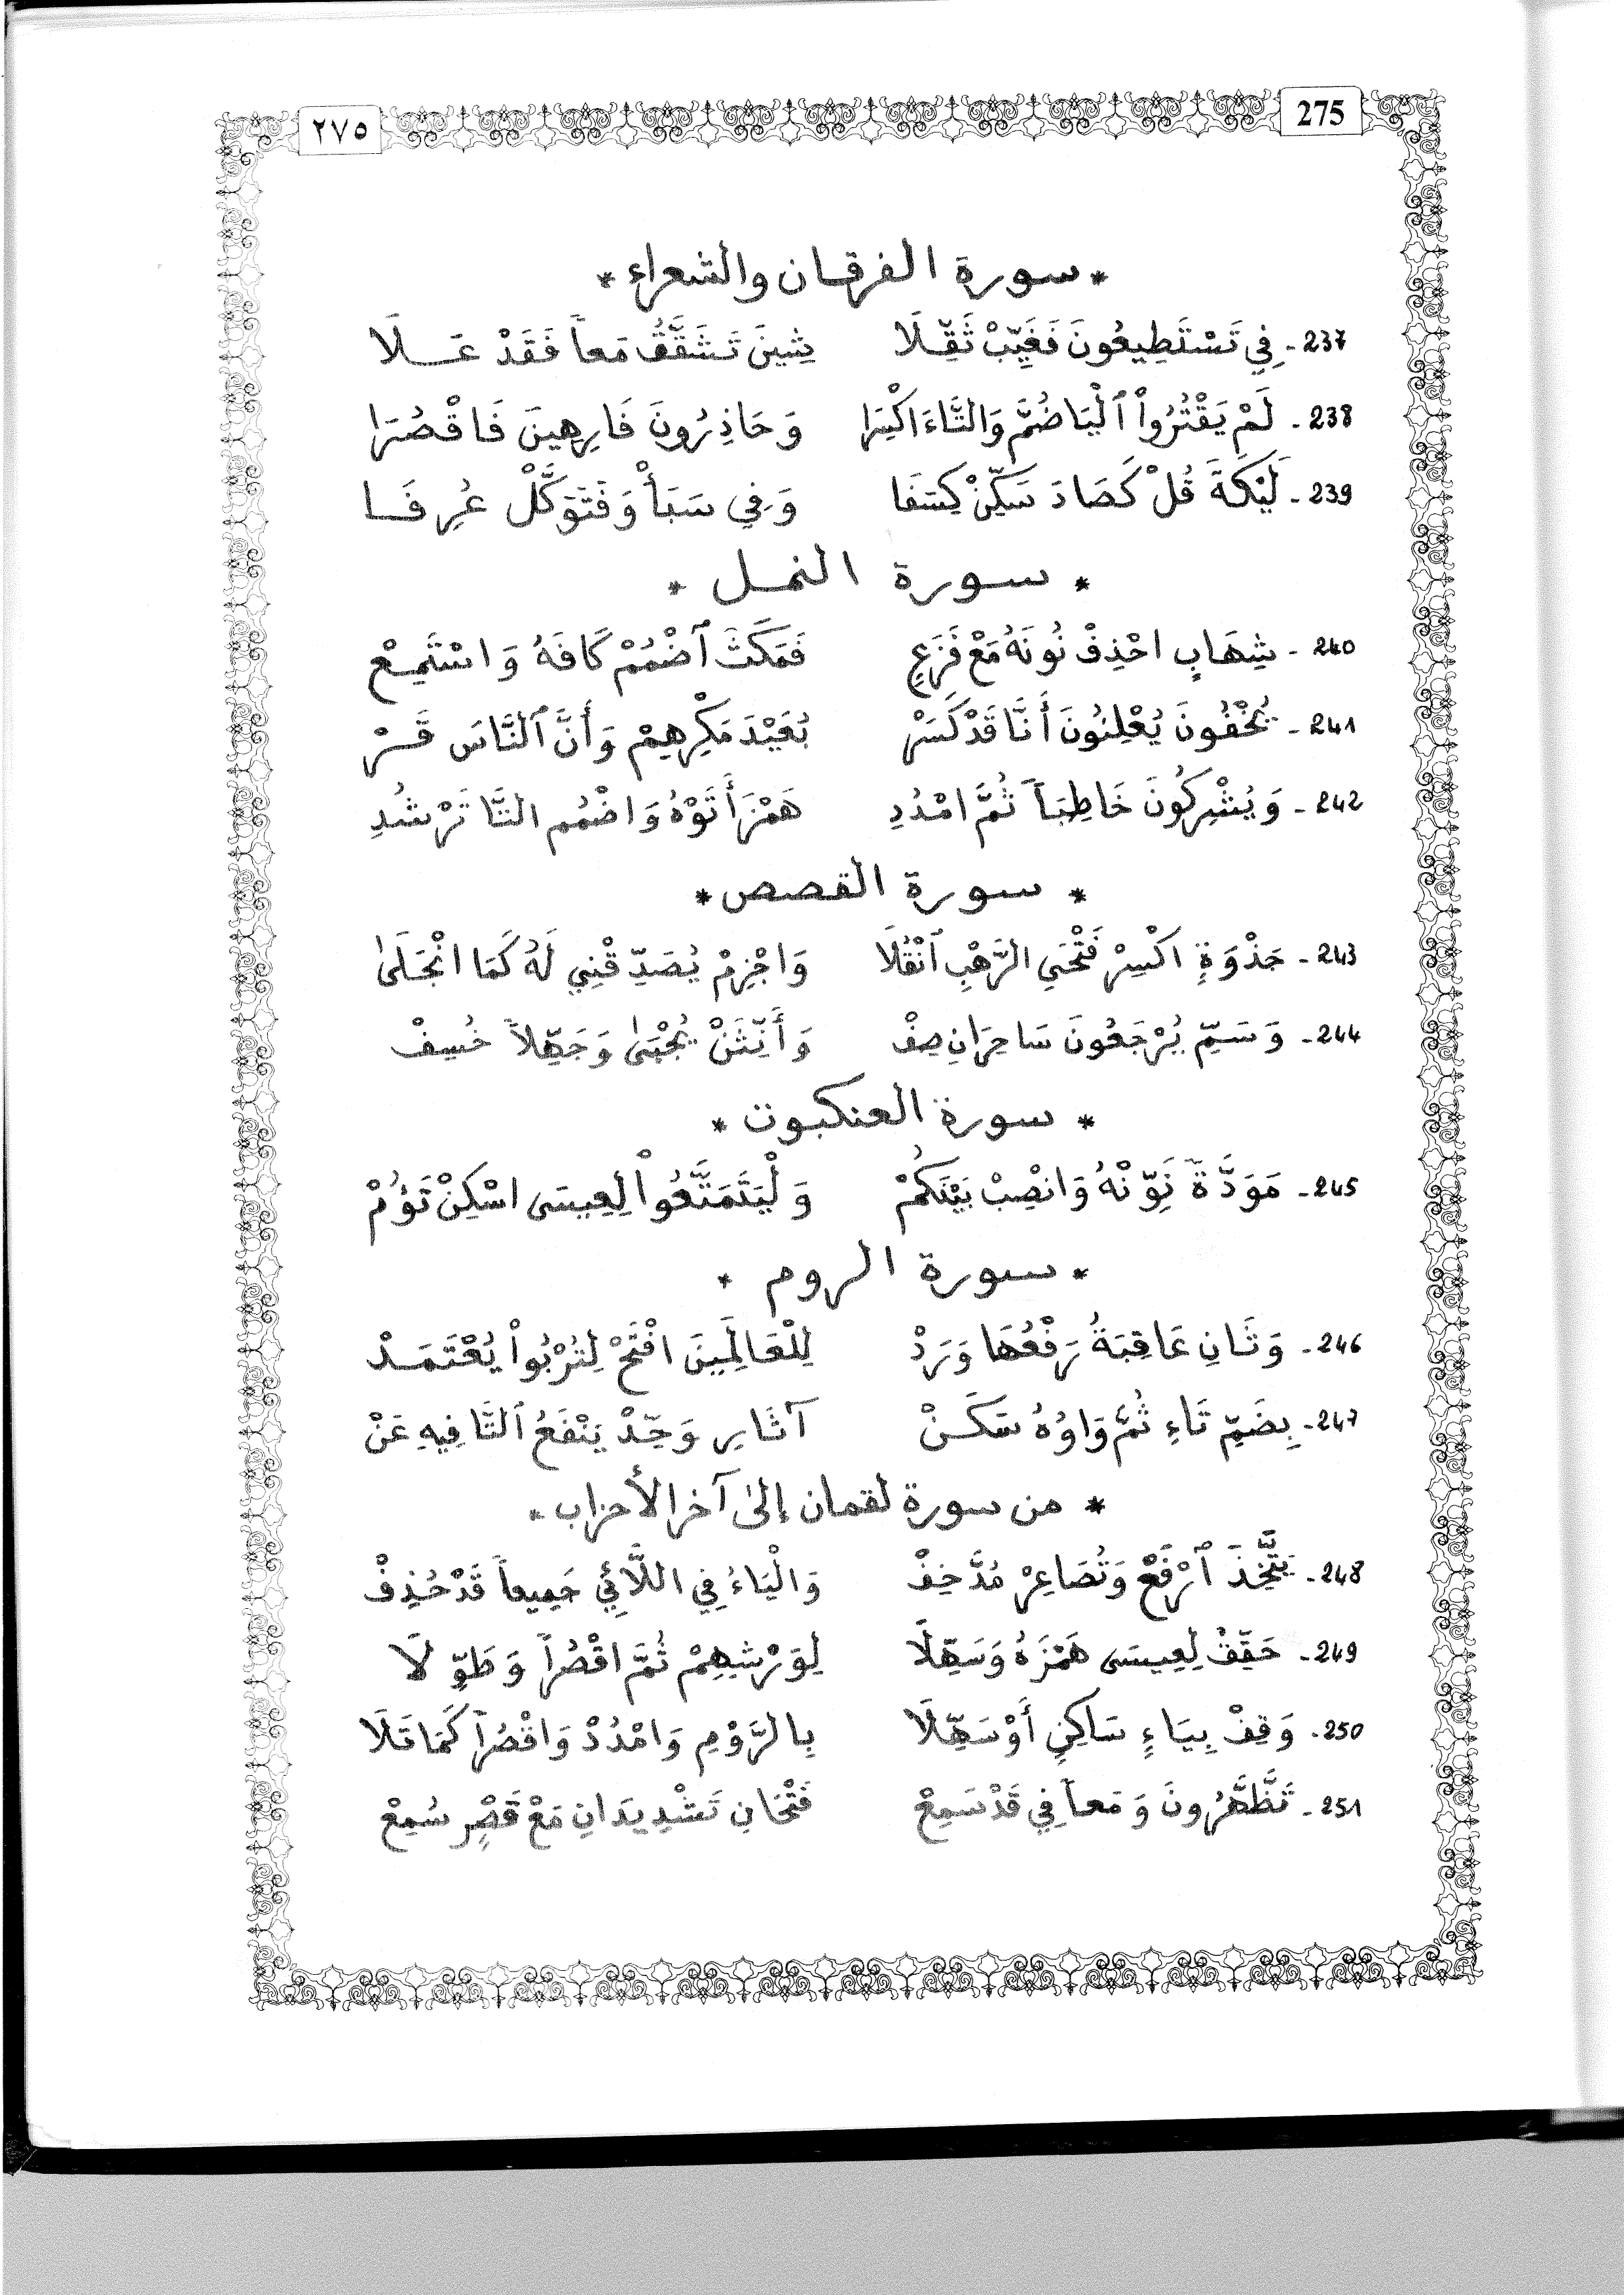 ٢٧٥
275
* سورة الفرقان والشعراء *
237- فِي تَسْتَطِيعُونَ فَغَيِّبْ ثَقِّلَا شِينَ تَشَقَّقُ مَعاً فَقَدْ عَلَا
238- لَمْ يَقْتُرُواْ ٱلْيَا ضُمَّ وَالتَّاءَ اكْسِرَا وَحَاذِرُونَ فَارِهِينَ فَاقْصُرَا
239- لَيْكَةَ قُلْ كَصَادَ سَكِّنْ كِسَفَا وَفِي سَبَأْ وَفَتَوَكَّلْ عُرِفَا
* سورة النمل *
240- شِهَابِ احْذِفْ نُونَهُ مَعْ فَزَعِ فَمَكَثَ ٱضْمُمْ كَافَهُ وَاسْتَمِعْ
241- يُخْفُونَ يُعْلِنُونَ أَنَّا قَدْ كَسَرْ بُعَيْدَ مَكْرِهِمْ وَأَنَّ ٱلنَّاسَ قَرْ
242- وَيُشْرِكُونَ خَاطِباً ثُمَّ امْدُدِ هَمْزَ أَتَوْهُ وَاضْمُم التَّا تَرْشُدِ
* سورة القصص *
243- جَذْوَةٍ اكْسِرْ فَتْحَيِ الرَّهْبِ ٱنْقُلَا وَاجْزِمْ يُصَدِّقْنِي لَهُ كَمَا انْجَلَىٰ
244- وَسَمِّ يُرْجَعُونَ سَاحِرَانِ صِفْ وَأَنِّثَنْ يُجْبَىٰ وَجَهِّلاً خُسِفْ
* سورة العنكبوت *
245- مَوَدَّةً نَوِّنْهُ وَانْصِبْ بَيْنَكُمْ وَلْيَتَمَتَّعُواْ لِعِيسَى اسْكِنْ تَؤُمْ
* سورة الروم *
246- وَثَانِ عَاقِبَةُ رَفْعُهَا وَرَدْ لِلْعَالَمِينَ افْتَحْ لِتُرْبُواْ يُعْتَمَدْ
247- بِضَمِّ تَاءِ ثُمَّ وَاوُهُ سَكَنْ آثَارِ وَحِّدْ يَنْفَعُ ٱلتَّا فِيهِ عَنْ
* من سورة لقمان إلىٰ آخر الأحزاب *
248- يَتَّخِذَ ٱرْفَعْ وَتُصَاعِرْ مُدَّ خِفْ وَالْيَاءُ فِي اللَّائِي جَمِيعاً قَدْ حُذِفْ
249- حَقِّقْ لِعِيسَى هَمْزَهُ وَسَهِّلَا لِوَرْشِهِمْ ثُمَّ اقْصُراً وَطَوِّلَا
250- وَقِفْ بِيَاءٍ سَاكِنٍ أَوْ سَهِّلَا بِالرَّوْمِ وَامْدُدْ وَاقْصُراً كَمَا قَلَا
251- تَظَّهَّرُونَ وَمَعاً فِي قَدْ سَمِعْ فَتْحَانِ تَشْدِيدَانِ مَعْ قَصْرٍ سُمِعْ